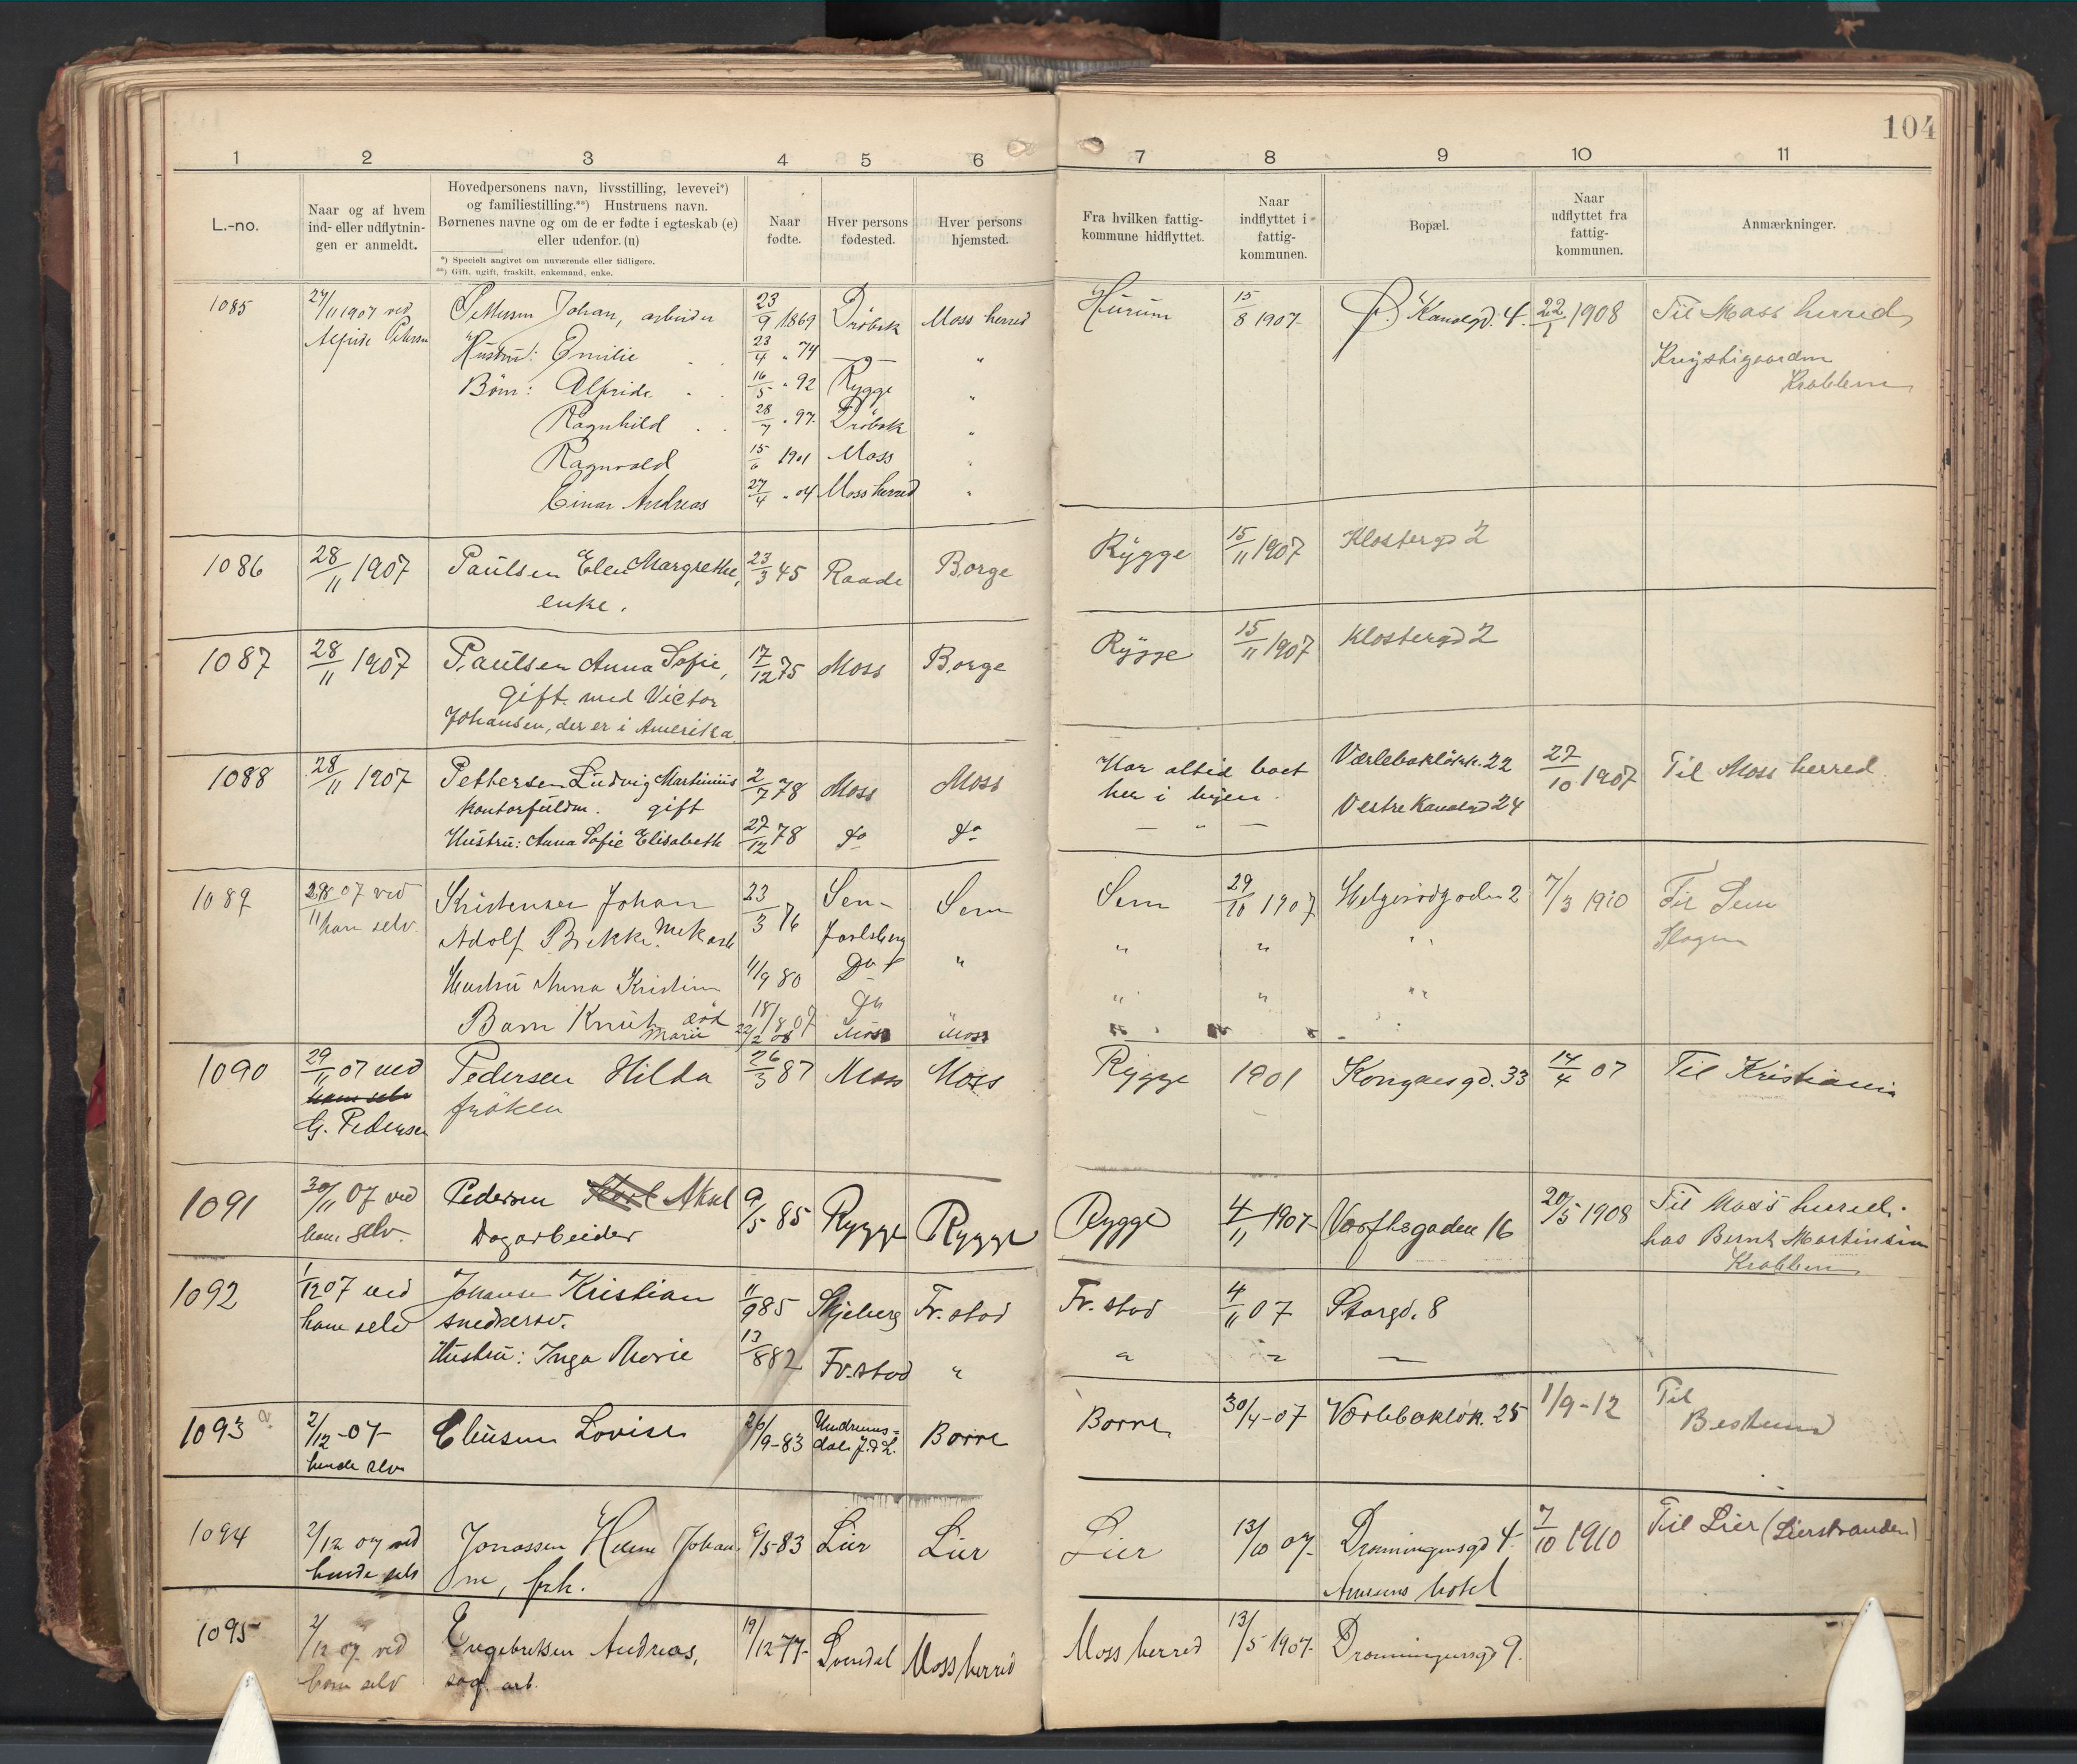 104
1 2 3 4 5 6 7 8 9 10 11
L.-no.
Naar og af hvem
ind- eller udflytnin-
gen er anmeldt.
Hovedpersonens navn, livsstilling, levevei*)
og familiestilling.**) Hustruens navn.
Børnenes navne og om de er fødte i egteskab (e)
eller udenfor. (u)
*) Specielt angivet om nuværende eller tidligere.
**) Gift, ugift, fraskilt, enkemand, enke.
Naar
fødte.
Hver persons
fødested.
Hver persons
hjemsted.
Fra hvilken fattig-
kommune hidflyttet.
Naar
indflyttet i
fattig-
kommunen.
Bopæl.
Naar
udflyttet fra
fattig-
kommunen.
Anmærkninger.
1085 27/11 1907 ved Johan, arbeider 23/9 1869 Drøbak Moss herred Hurum 15/8 1907 Ø. Kanalgd. 4. 22/1 1908 Til Moss herred
Hustru: Emilie 23/4 " 74 — " — "
Børn: Alfride 16/5 " 92 Rygge " Krabben
Ragnhild 28/7 " 97 Drøbak "
Ragnvald 15/6 1901 Moss "
Einar Andreas 27/4 " 04 Moss herred "
1086 28/11 1907 Paulsen Elen Margrethe, 23/3 45 Raade Borge Rygge 15/11 1907 Klostergd 2
enke.
1087 28/11 1907 Paulsen Anna Sofie, 17/12 75 Moss Borge Rygge 15/11 1907 Klostergd 2
gift med Victor
Johansen, der er i Amerika
1088 28/11 1907 Pettersen Ludvig Martinius 2/7 78 Moss Moss Har altid boet Værlebakløkk. 22 27/10 1907 Til Moss herred
kontorfuldm. gift her i byen. Vestre Kanalgd 24
Hustru: Anna Sofie Elisabeth 27/12 78 do do — " —
1089 29/11 07 ved Kristensen Johan 23/3 76 Sem Sem Sem 29/10 1907 Helgerødgaden 2 7/3 1910 Til Sem
ham selv. Adolf Jarlsberg " " " Slagen
Hustru Anna Kristine 11/9 80 Do " " " "
Barn Knut 18/8 07 Do
Marie 22/2 08 Moss Moss
1090 29/11 07 ved Pedersen Hilda 26/3 87 Moss Moss Rygge 1901 Kongensgd. 33 14/4 07 Til Kristiania
ham selv frøken
G. Pedersen
1091 30/11 07 ved Pedersen Karl Aksel 9/5 85 Rygge Rygge Rygge 4/11 1907 Værftsgaden 16 20/5 1908 Til Moss herred.
ham selv. Dagarbeider hos Bernt Martinsen
Krabben
1092 1/12 07 ved Johansen Kristian 11/9 85 Skjeberg Fr. stad Fr. stad 4/11 07 Storgd. 8
ham selv snedkersv.
Hustru: Inga Marie 13/8 82 Fr. stad " " " —
1093 2/12-07 Eliusen Lovise 26/9-83 Undrums- Borre Borre 30/4-07 Værlebakløk. 25 1/9-12 Til
hende selv dal J. & L.
1094 2/12 07 ved Jonassen Johan- 9/5 83 Lier Lier Lier 13/10 07 Dronningensgd 4. 7/10 1910 Til Lier (Lierstranden)
hende selv ne, frk. hotel
1095 2/12 07 ved Engebretsen Andreas, 19/12 77 Svendal Moss herred Moss herred 13/5 1907 Dronningensgd 9.
ham selv sag. arb.